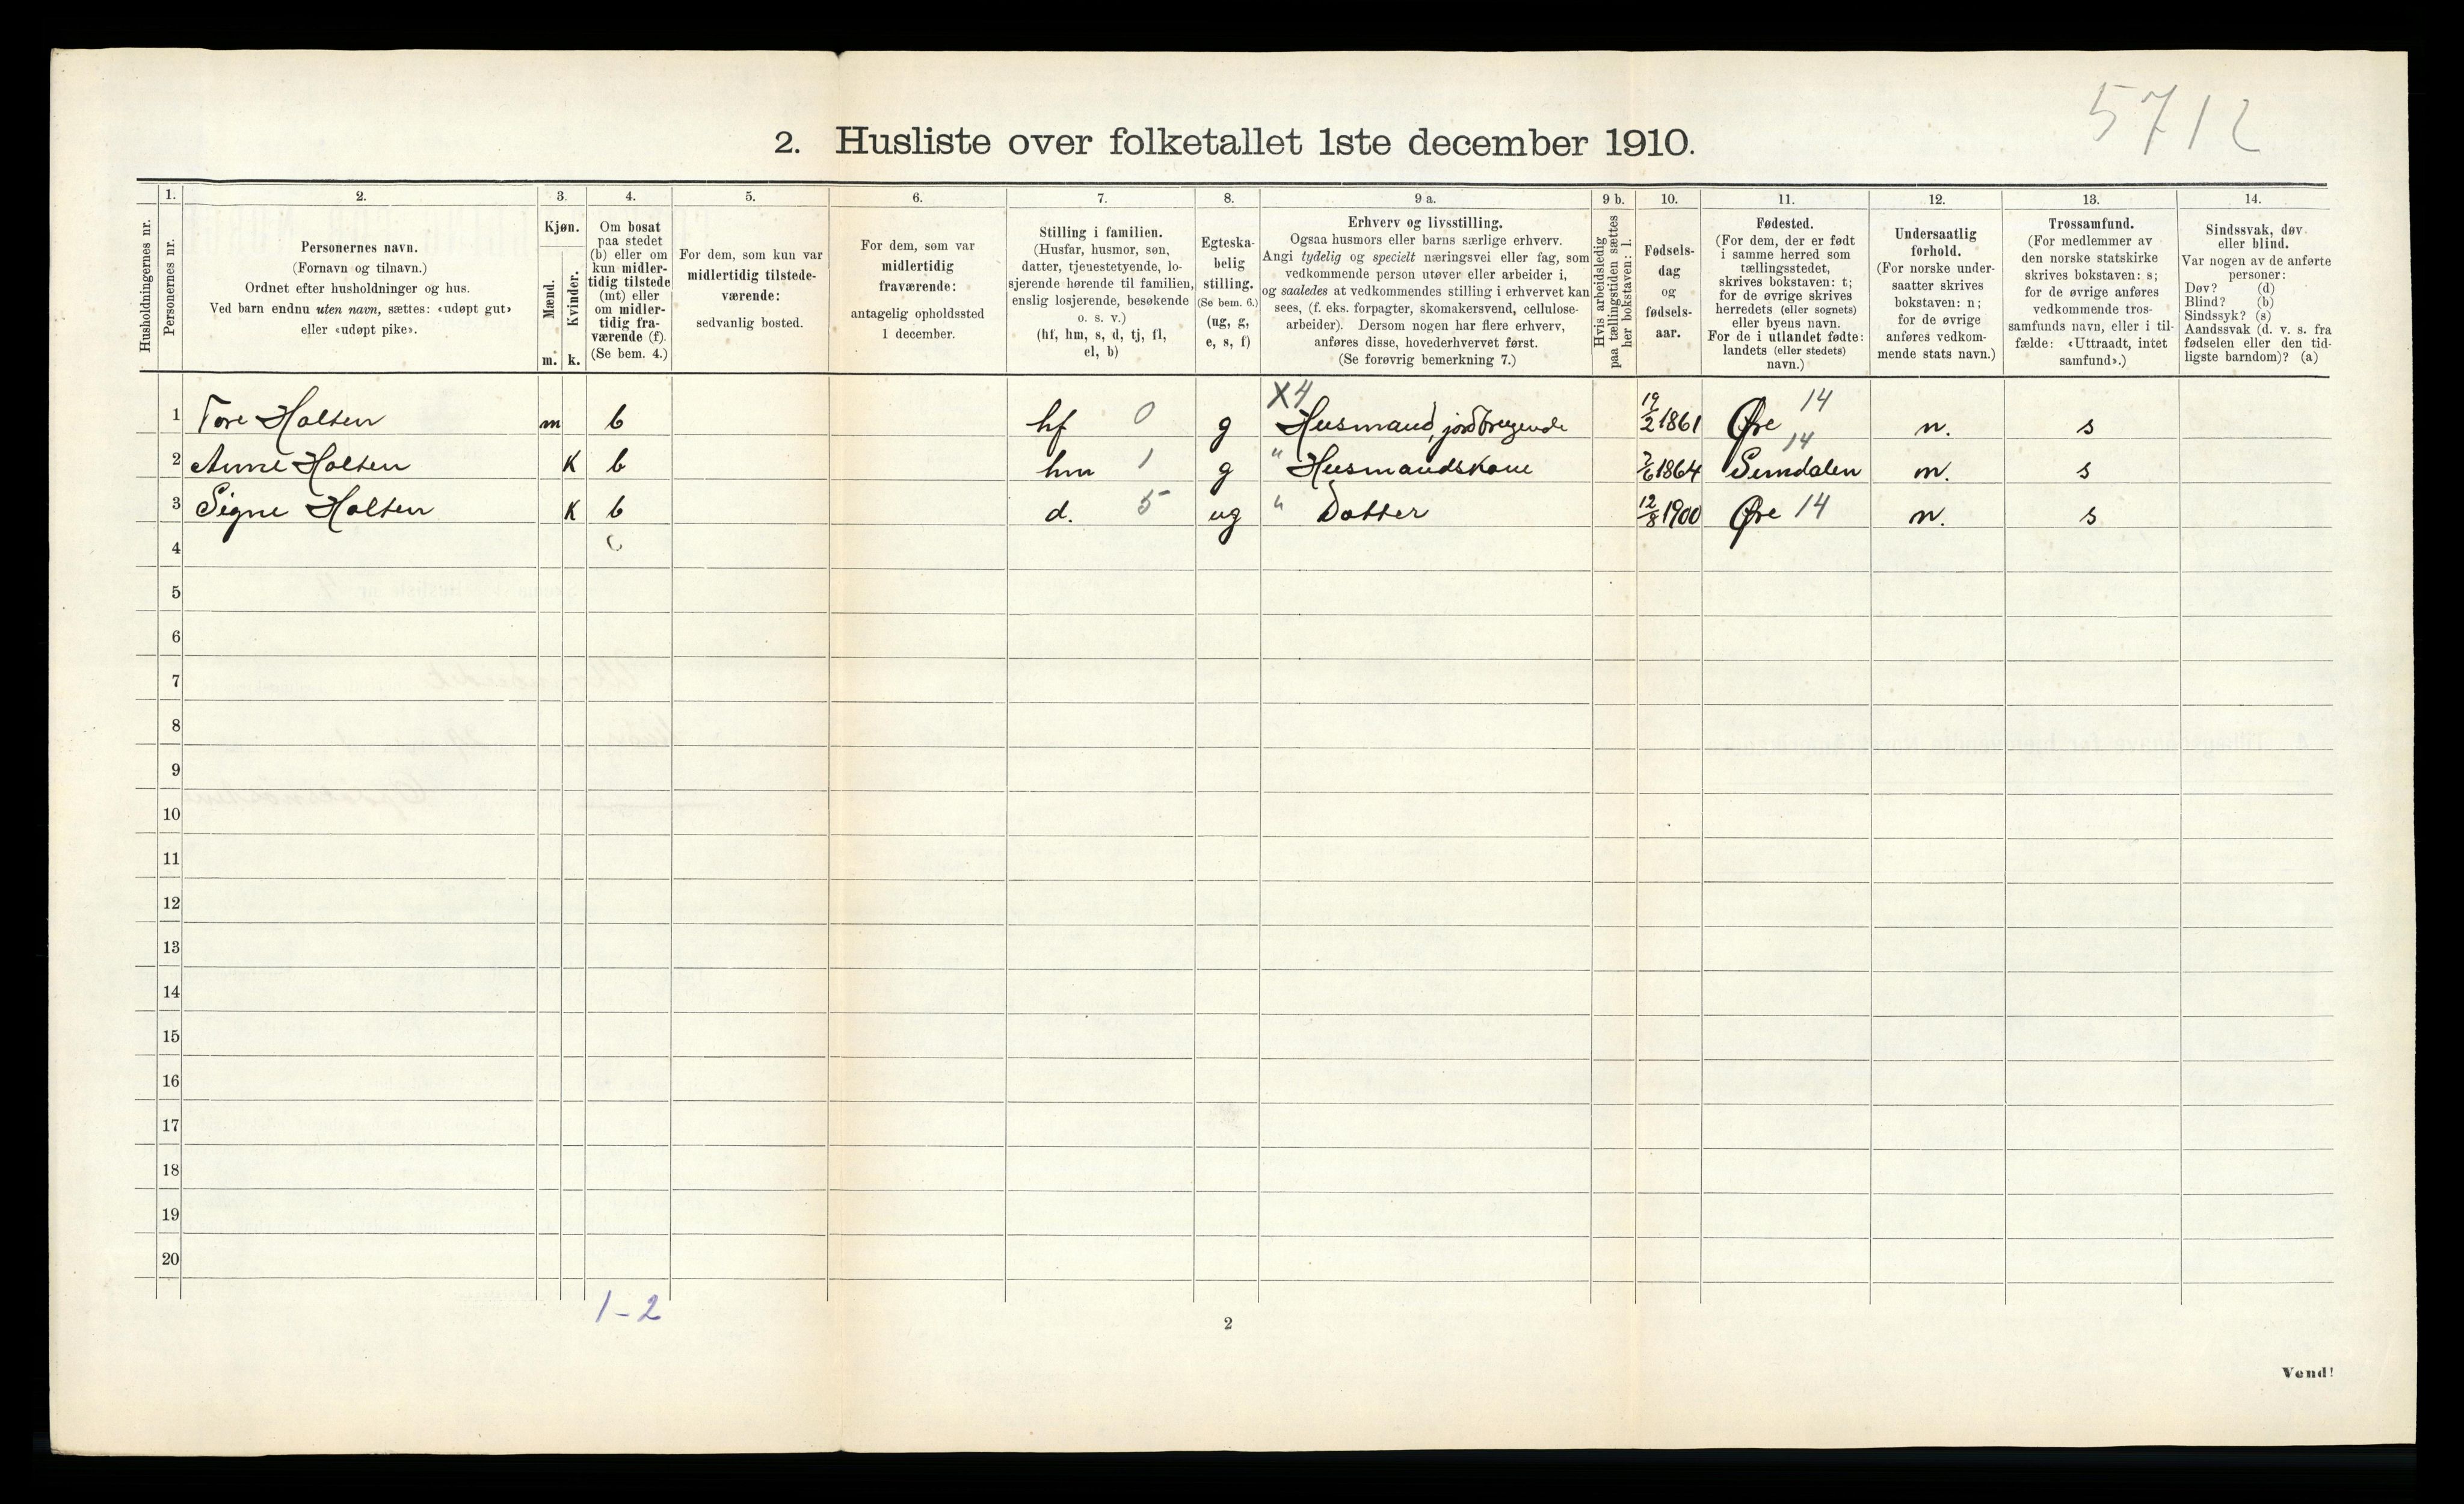 5712
2. Husliste over folketallet 1ste december 1910.
Husholdningernes nr.
1.
Personernes nr.
2.
Personernes navn.
(Fornavn og tilnavn.)
Ordnet efter husholdninger og hus.
Ved barn endnu uten navn, sættes: «udøpt gut»
eller «udøpt pike».
3.
Kjøn.
Mænd.
m.
Kvinder.
k.
4.
Om bosat
paa stedet
(b) eller om
kun midler-
tidig tilstede
(mt) eller
om midler-
tidig fra-
værende (f).
(Se bem. 4.)
5.
For dem, som kun var
midlertidig tilstede-
værende:
sedvanlig bosted.
6.
For dem, som var
midlertidig
fraværende:
antagelig opholdssted
1 december.
7.
Stilling i familien.
(Husfar, husmor, søn,
datter, tjenestetyende, lo-
sjerende hørende til familien,
enslig losjerende, besøkende
o. s. v.)
(hf, hm, s, d, tj, fl,
el, b)
8.
Egteska-
belig
stilling.
(Se bem. 6.)
(ug, g,
e, s, f)
9 a.
Erhverv og livsstilling.
Ogsaa husmors eller barns særlige erhverv.
Angi tydelig og specielt næringsvei eller fag, som
vedkommende person utøver eller arbeider i,
og saaledes at vedkommendes stilling i erhvervet kan
sees, (f. eks. forpagter, skomakersvend, cellulose-
arbeider). Dersom nogen har flere erhverv,
anføres disse, hovederhvervet først.
(Se forøvrig bemerkning 7.)
9 b.
Hvis arbeidsledig
paa tællingstiden sættes
her bokstaven: l.
10.
Fødsels-
dag
og
fødsels-
aar.
11.
Fødested.
(For dem, der er født
i samme herred som
tællingsstedet,
skrives bokstaven: t;
for de øvrige skrives
herredets (eller sognets)
eller byens navn.
For de i utlandet fødte:
landets (eller stedets)
navn.)
12.
Undersaatlig
forhold.
(For norske under-
saatter skrives
bokstaven: n;
for de øvrige
anføres vedkom-
mende stats navn.)
13.
Trossamfund.
(For medlemmer av
den norske statskirke
skrives bokstaven: s;
for de øvrige anføres
vedkommende tros-
samfunds navn, eller i til-
fælde: «Uttraadt, intet
samfund».)
14.
Sindssvak, døv
eller blind.
Var nogen av de anførte
personer:
Døv? (d)
Blind? (b)
Sindssyk? (s)
Aandssvak (d. v. s. fra
fødselen eller den tid-
ligste barndom)? (a)
X4
1 Tore Holten m b hf 0 g Husmand, jordbrugende 19/2 1861 Øre 14 n. s
2 Anne Holten K b hm 1 g " Husmandskone 7/6 1864 Sundalen 14 n. s
3 Signe Holten K b d. 5 ug " Datter 12/8 1900 Øre 14 n. s
4
5
6
7
8
9
10
11
12
13
14
15
16
17
18
19
20
1-2
2
Vend!